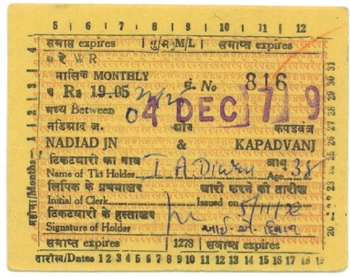 5 6 7 8 9 10 11 12
समाप्त expires पु/पर M/L समाप्त expires
प रे WR
मासिक MONTHLY सं. No 816
रु Rs 19-05
मध्य Between 04 DEC 79
नडियाद ज. और कपडवंज
NADIAD JN & KAPADVANJ
टिकटधारी का नाम आयु
Name of Tkt Holder I A Diwan Age 38
लिपिक के प्रथमाक्षर जारी करने की तारीख
Initial of Clerk Issued on
टिकटधारी के हस्ताक्षर
Signature of Holder
समाप्त expires 1278 समाप्त expires
तारीख/Dates 12 13 14 15 16 17 18 19
महीना/Months